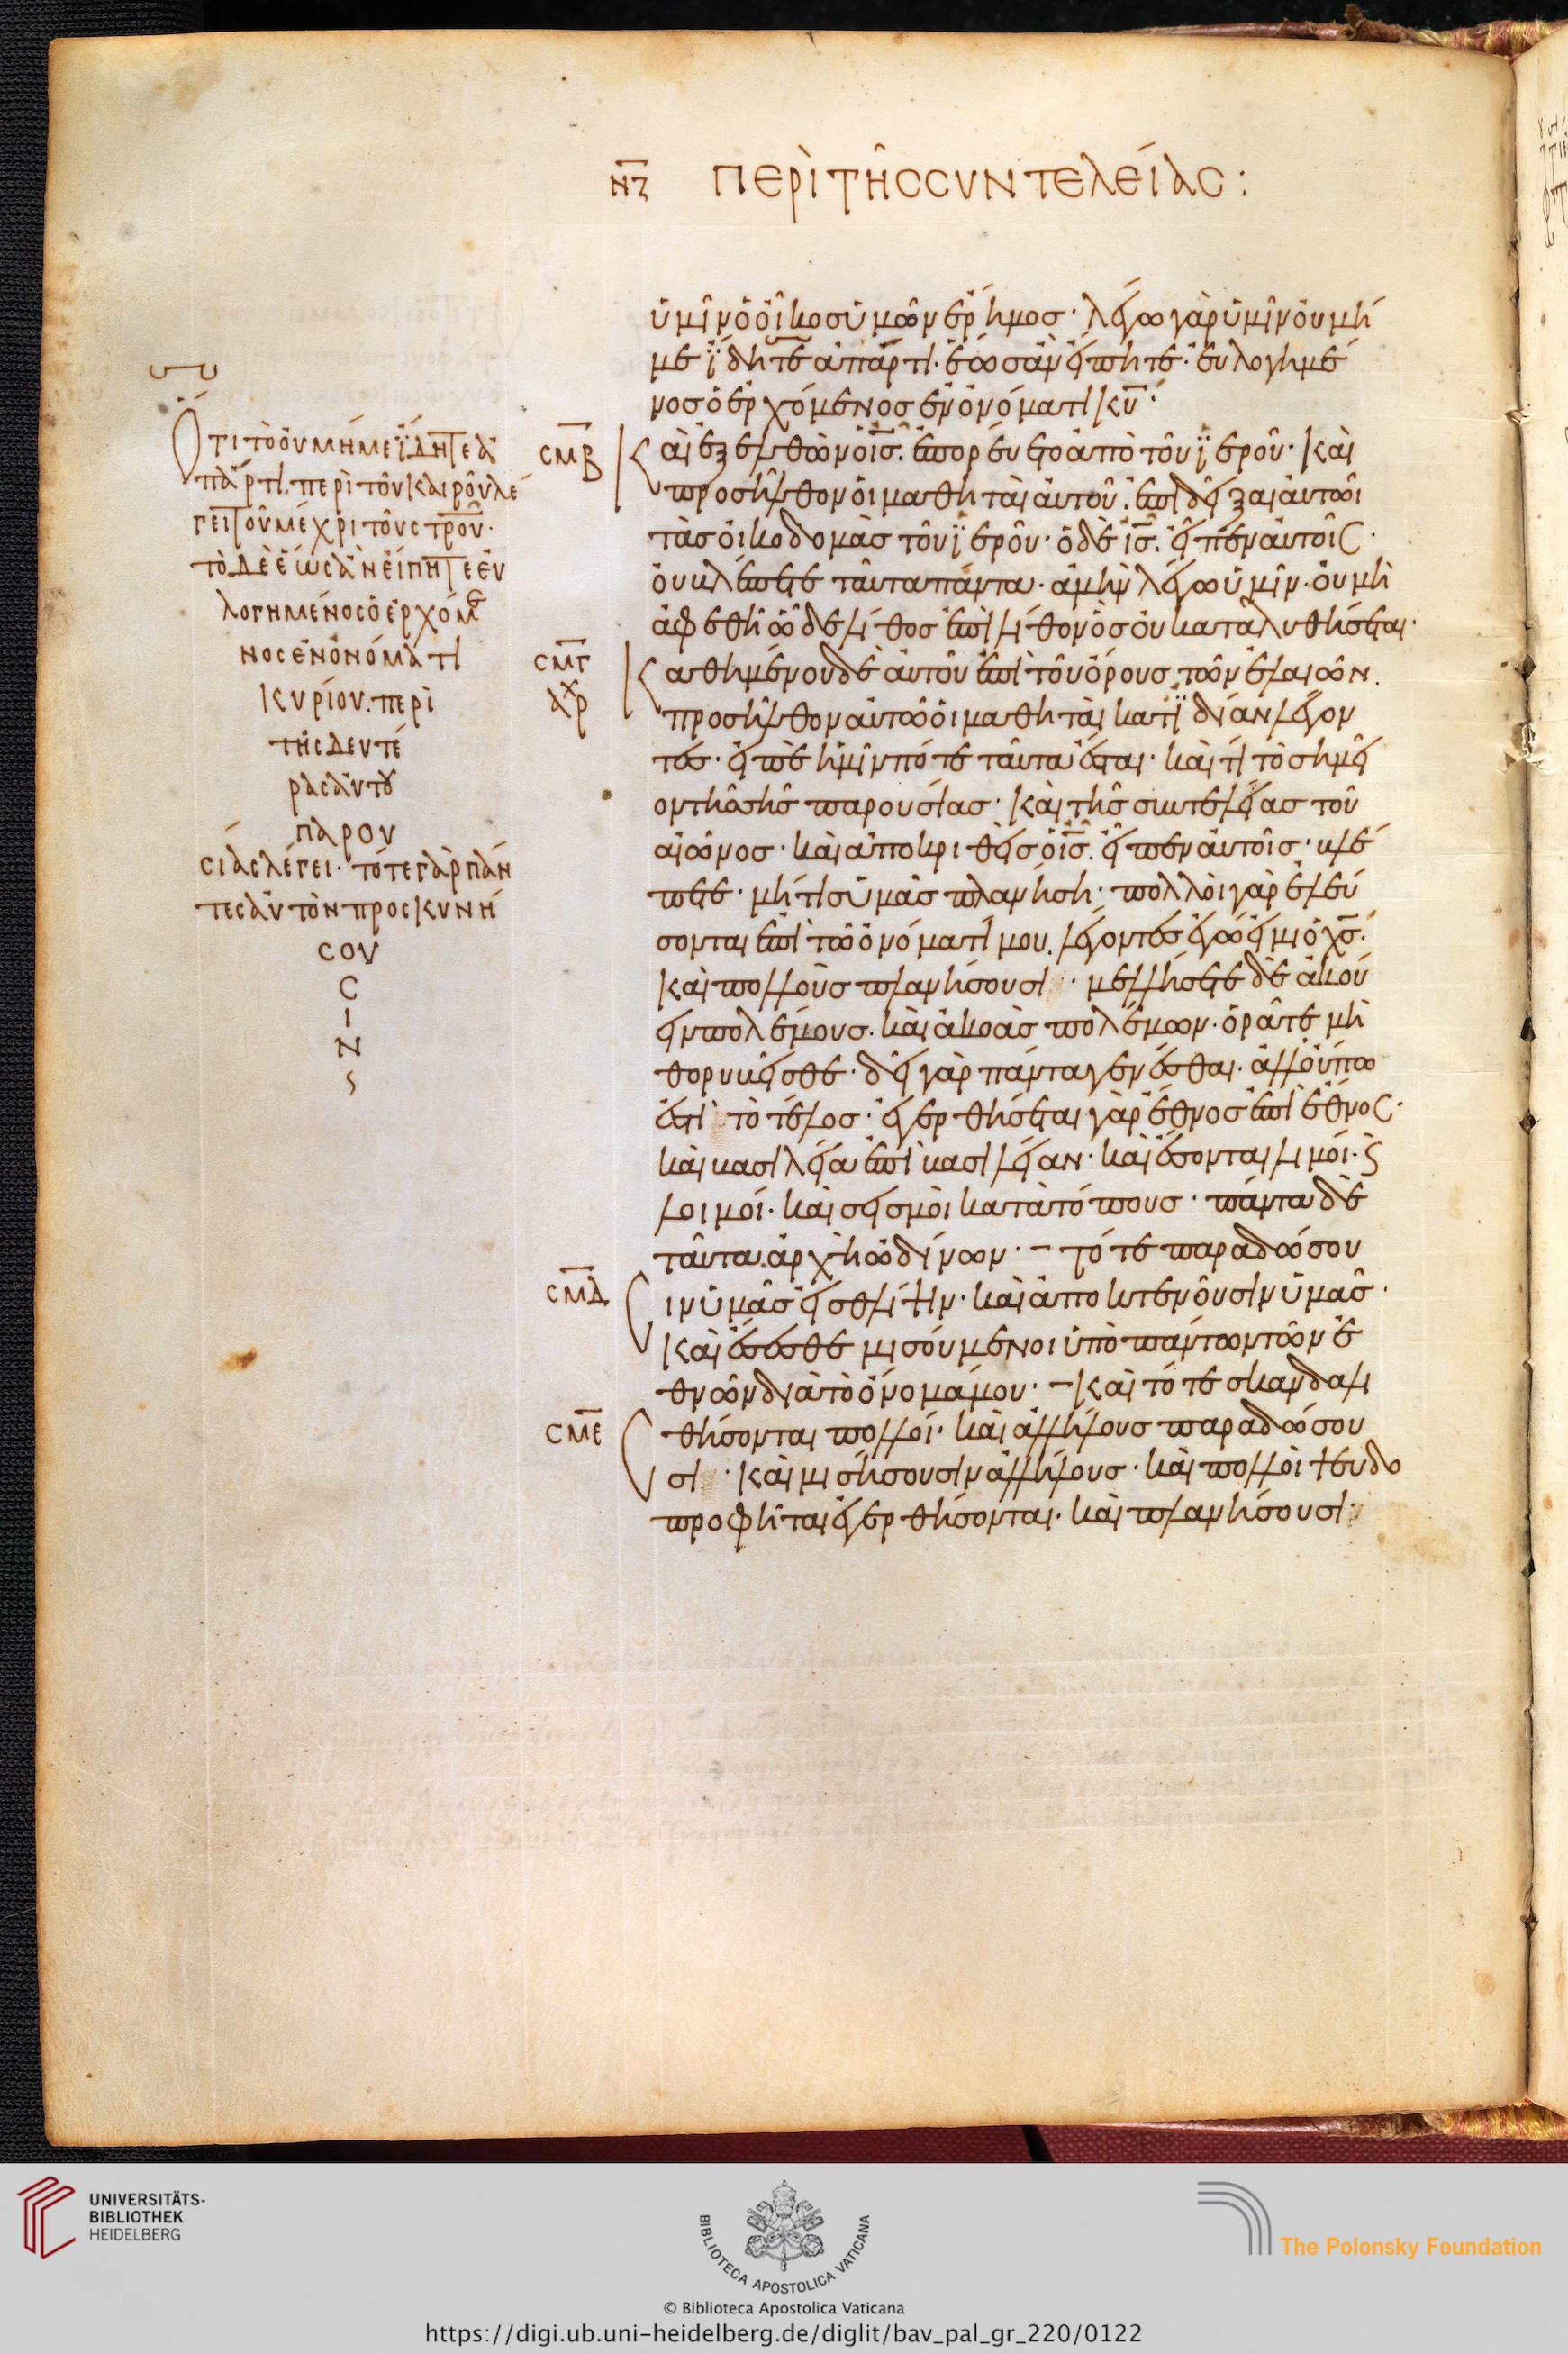 ΝΖ ΠΕΡῚ ΤΗ͂Σ ΣΥΝΤΕΛΕΊΑΣ:
ὑμῖν ὁ οἶκοσ ὑμῶν ἔρημοσ· λέγω γὰρ ὑμῖν οὐ μή
με ἴδητε ἀπάρτι· ἕωσ ἂν εἴπητε· εὐλογημέ
νοσ ὁ ἐρχόμενοσ ἐν ὀνόματι κυ·
ΣΜΒ Καὶ ἐξελθὼν ὁ ισ. ἐπορεύετο ἀπὸ τοῦ ἱεροῦ· καὶ
προσῆλθον οἱ μαθηταὶ αὐτοῦ. ἐπιδεῖξαι αὐτῶι
τὰσ οἰκοδομὰσ τοῦ ἱεροῦ· ὁ δὲ ισ. εἶπεν αὐτοῖσ·
οὐ βλέπετε ταῦτα πάντα· ἀμὴν λέγω ὑμῖν· οὐ μὴ
ἀφεθῆ ὧδε λίθοσ ἐπὶ λίθον ὃσ οὐ καταλυθήσεται·
ΣΜΓ Καθημένου δὲ αὐτοῦ ἐπὶ τοῦ ὄρουσ τῶν ἐλαιῶν.
προσῆλθον αὐτῶ οἱ μαθηταὶ κατϊδίαν λέγον
τεσ· εἰπὲ ἡμῖν πότε ταῦτα ἔσται· καὶ τί τὸ σημεῖ
ον τῆσ σῆσ παρουσίασ· καὶ τῆσ συντελείασ τοῦ
αἰῶνοσ· καὶ ἀποκριθεὶσ ὁ ισ. εἶπεν αὐτοῖσ· βλέ
πετε· μή τισ ὑμᾶσ πλανήση· πολλοὶ γὰρ ἐλεύ
σονται ἐπὶ τῶ ὀνόματί μου. λέγοντεσ ἐγώ εἰμι ὁ χσ·
καὶ πολλοὺσ πλανήσουσι· μελλήσετε δὲ ἀκού
ειν πολέμουσ· καὶ ἀκοὰσ πολέμων· ὁρᾶτε μὴ
θορυβεῖσθε· δεῖ γὰρ πάντα γενέσθαι· ἀλλ οὔπω
ἐστὶ τὸ τέλοσ· ἐγερθήσεται γὰρ ἔθνοσ ἐπὶ ἔθνοσ·
καὶ βασιλεία ἐπὶ βασιλείαν· καὶ ἔσονται λιμοί· ϛ
λοιμοί· καὶ σεισμοὶ κατὰ τόπουσ· πάντα δὲ
ταῦτα ἀρχὴ ὠδίνων· – τότε παραδώσου
ΣΜΔ σιν ὑμᾶσ εἰσ θλίψιν· καὶ ἀποκτενοῦσιν ὑμᾶσ·
καὶ ἔσεσθε μισούμενοι ὑπὸ πάντων τῶν ἐ
θνῶν διὰ τὸ ὄνομά μου· – καὶ τότε σκανδαλι
ΣΜΕ σθήσονται πολλοί· καὶ ἀλλήλουσ παραδώσου
σι· καὶ μισήσουσιν ἀλλήλουσ· καὶ πολλοὶ ψευδο
προφῆται ἐγερθήσονται· καὶ πλανήσουσι·
Ὅτι τὸ οὐ μή με ἴδητε ἀ
πάρτι. περὶ τοῦ καιροῦ λέ
γει τοῦ μέχρι τοῦ στρου·
τὸ δὲ ἕως ἂν εἴπητε εὐ
λογημένος ὁ ἐρχόμε
νος ἐν ὀνόματι
κυρίου. περὶ
τῆς δευτέ
ρας αὐτου
παρου
σίας λέγει· τότε γὰρ πάν
τες αὐτὸν προσκυνή
σου
σ
ι
ν
UNIVERSITÄTS-
BIBLIOTHEK
HEIDELBERG
BIBLIOTECA APOSTOLICA VATICANA
The Polonsky Foundation
© Biblioteca Apostolica Vaticana
https://digi.ub.uni-heidelberg.de/diglit/bav_pal_gr_220/0122